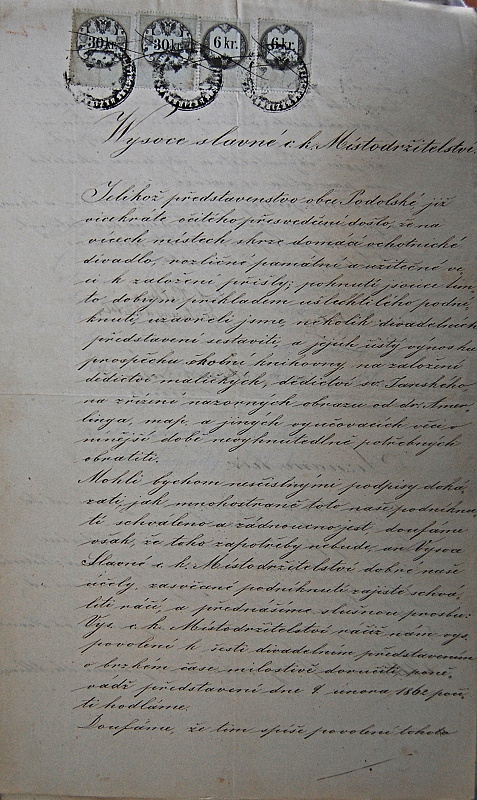 30 kr. 30 kr. 6 kr. 6 kr.
Wysoce slavné c. k. Místodržitelství.
Jelikož představenstvo obce Podolské již
vícekráte očitého přesvědčení došlo, že na
vícech místech skrze domácí ochotnické
divadlo, rozličné památní a užitečné ve,
ci k založení přišly; pohnuti jsouce tím,
to dobrým příkladem ušlechtilého podni,
knutí, uzavřeli jsme, několik divadelních
představení sestaviti, a jejich čistý výnos ku
prospěchu školní knihovny, na založení
dědictví maličkých, dědictví sv. Janského
na zřízení názorných obrazů od dr. Amer-
linga, map. a jiných vyučovacích věcí v
nynější době nevyhnutedlně potřebných
obrátiti.
Mohli bychom nesčíslnými podpisy doká,
zati, jak mnohostraně toto naše podniknu,
tí schváleno a žádoucno jest, doufáme
však, že toho zapotřeby nebude, an Vysoce
Slavné c. k. Místodržitelství dobré naše
účely, zasvěcané podniknutí zajisté schvá,
liti ráčí, a přednášíme slušnou prosbu:
Vys. c. k. Místodržitelství račiž nám vys.
povolení k šesti divadelním představením
v brzkém čase milostivě doručiti, poně,
vádž představení dne 2. února 1862 počí,
ti hodláme.
Doufáme, že tím spíše povolení tohoto